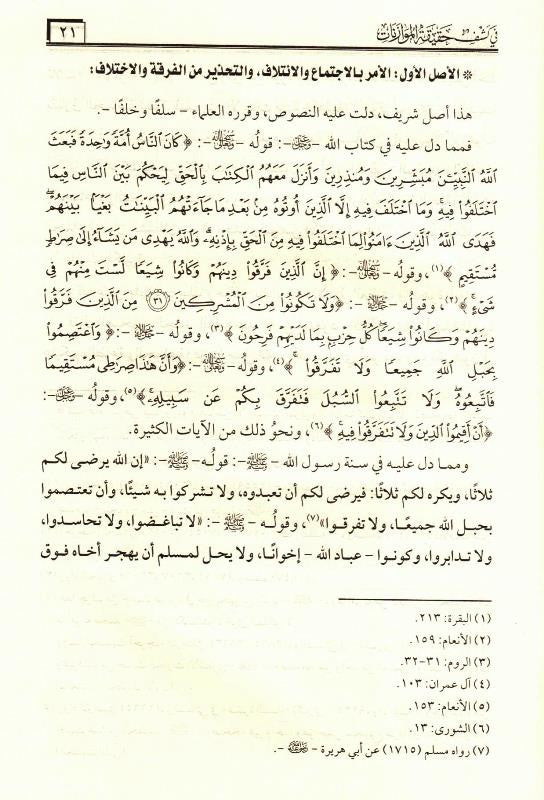 في كشف حقيقة الموازنات
٢١
* الأصل الأول: الأمر بالاجتماع والائتلاف، والتحذير من الفرقة والاختلاف:
هذا أصل شريف، دلت عليه النصوص، وقرره العلماء - سلفًا وخلفًا -.
فمما دل عليه في كتاب الله - -: قولُه - -: ﴿كَانَ النَّاسُ أُمَّةً وَٰحِدَةً فَبَعَثَ
اللَّهُ النَّبِيِّنَ مُبَشِّرِينَ وَمُنذِرِينَ وَأَنزَلَ مَعَهُمُ الْكِتَٰبَ بِالْحَقِّ لِيَحْكُمَ بَيْنَ النَّاسِ فِيمَا
اخْتَلَفُوا فِيهِ وَمَا اخْتَلَفَ فِيهِ إِلَّا الَّذِينَ أُوتُوهُ مِنۢ بَعْدِ مَا جَآءَتْهُمُ الْبَيِّنَٰتُ بَغْيًۢا بَيْنَهُمْ
فَهَدَى اللَّهُ الَّذِينَ ءَامَنُوا لِمَا اخْتَلَفُوا فِيهِ مِنَ الْحَقِّ بِإِذْنِهِ وَاللَّهُ يَهْدِى مَن يَشَآءُ إِلَىٰ صِرَٰطٍ
مُّسْتَقِيمٍ﴾(١)، وقوله - -: ﴿إِنَّ الَّذِينَ فَرَّقُوا دِينَهُمْ وَكَانُوا شِيَعًا لَّسْتَ مِنْهُمْ فِى
شَىْءٍ﴾(٢)، وقوله - -: ﴿وَلَا تَكُونُوا مِنَ الْمُشْرِكِينَ ٣١ مِنَ الَّذِينَ فَرَّقُوا
دِينَهُمْ وَكَانُوا شِيَعًا كُلُّ حِزْبٍۭ بِمَا لَدَيْهِمْ فَرِحُونَ﴾(٣)، وقوله - -: ﴿وَاعْتَصِمُوا
بِحَبْلِ اللَّهِ جَمِيعًا وَلَا تَفَرَّقُوا﴾(٤)، وقوله - -: ﴿وَأَنَّ هَٰذَا صِرَٰطِى مُسْتَقِيمًا
فَاتَّبِعُوهُ وَلَا تَتَّبِعُوا السُّبُلَ فَتَفَرَّقَ بِكُمْ عَن سَبِيلِهِ﴾(٥)، وقولُه - -:
﴿أَنْ أَقِيمُوا الدِّينَ وَلَا تَتَفَرَّقُوا فِيهِ﴾(٦)، ونحوُ ذلك من الآيات الكثيرة.
ومما دل عليه في سنة رسول الله - ﷺ -: قولُه - ﷺ -: «إن الله يرضى لكم
ثلاثًا، ويكره لكم ثلاثًا: فيرضى لكم أن تعبدوه، ولا تشركوا به شيئًا، وأن تعتصموا
بحبل الله جميعًا، ولا تفرقوا»(٧)، وقولُه - ﷺ -: «لا تباغضوا، ولا تحاسدوا،
ولا تدابروا، وكونوا - عباد الله - إخوانًا، ولا يحل لمسلم أن يهجر أخاه فوق
(١) البقرة: ٢١٣.
(٢) الأنعام: ١٥٩.
(٣) الروم: ٣١-٣٢.
(٤) آل عمران: ١٠٣.
(٥) الأنعام: ١٥٣.
(٦) الشورى: ١٣.
(٧) رواه مسلم (١٧١٥) عن أبي هريرة - رضي الله عنه -.